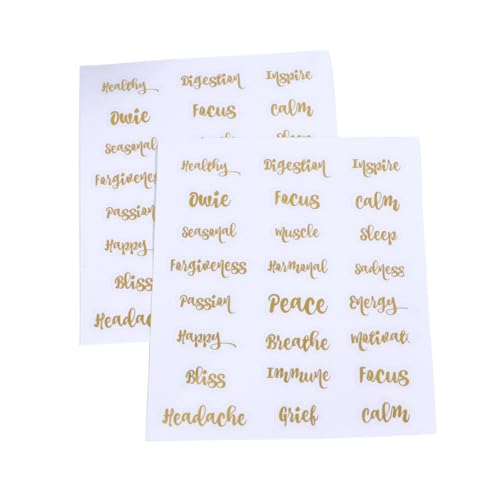 Healthy Digestion Inspire
Owie Focus calm
Seasonal Sleep
Forgiveness
Passion
Happy
Bliss
Headache
Healthy Digestion Inspire
Owie Focus calm
Seasonal muscle Sleep
Forgiveness Hormonal Sadness
Passion Peace Energy
Happy Breathe Motivat
Bliss Immune Focus
Headache Grief calm